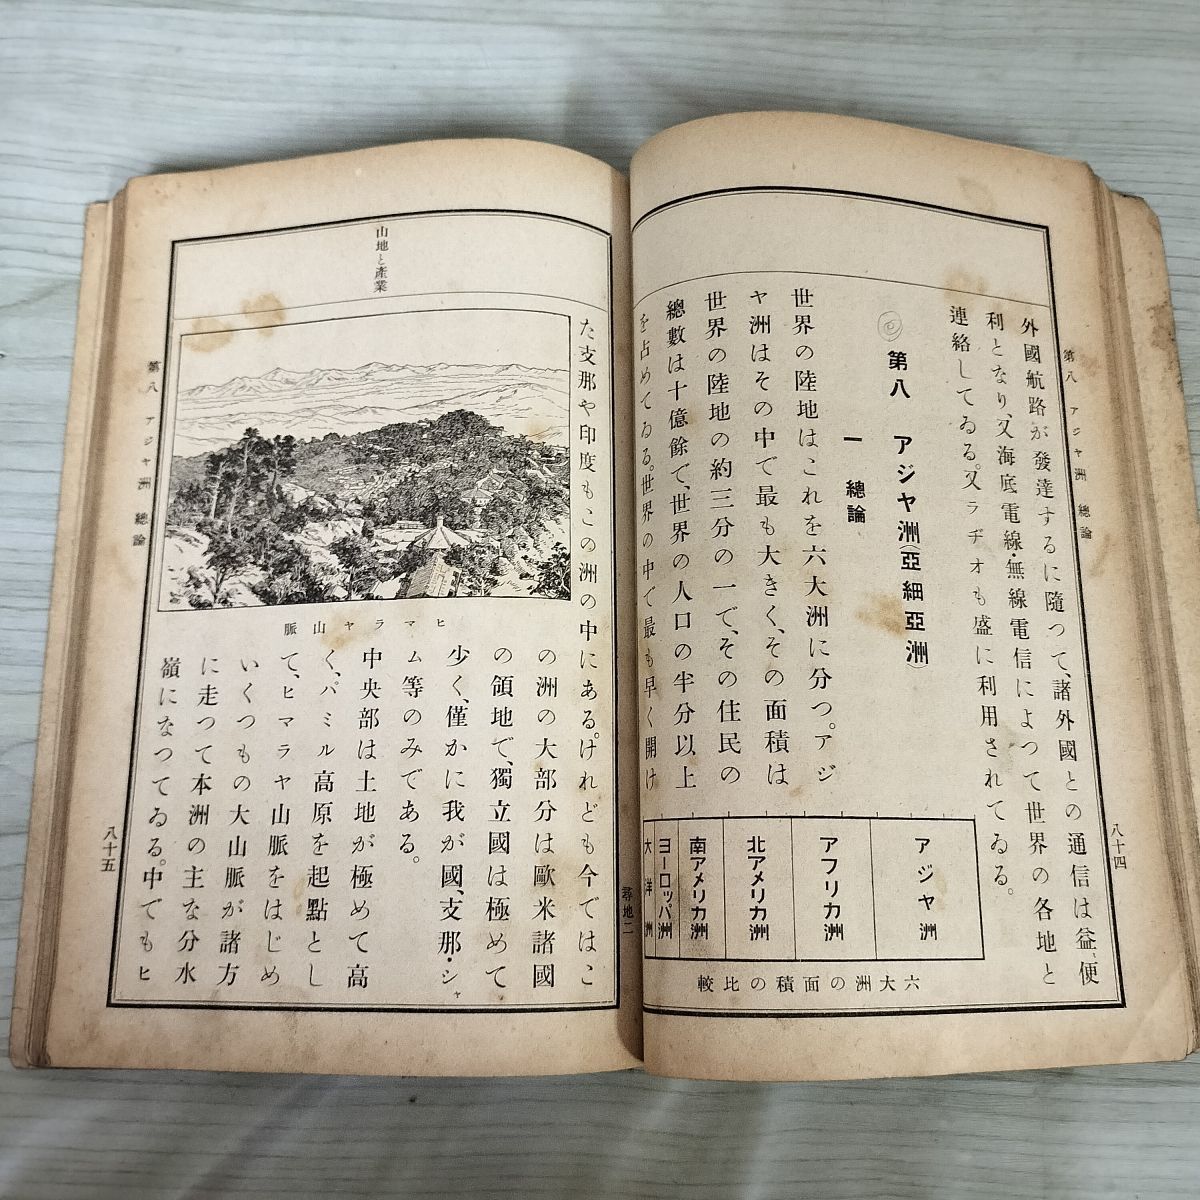 第八 アジヤ洲 總論
八十四
外國航路が發達するに隨つて、諸外國との通信は益、便
利となり、又海底電線・無線電信によつて世界の各地と
連絡してゐる。又ラヂオも盛に利用されてゐる。
第八 アジヤ洲(亞細亞洲)
一 總論
世界の陸地はこれを六大洲に分つ。アジ
ヤ洲はその中で最も大きく、その面積は
世界の陸地の約三分の一で、その住民の
總數は十億餘で、世界の人口の半分以上
を占めてゐる。世界の中で最も早く開け
アジヤ洲
アフリカ洲
北アメリカ洲
南アメリカ洲
ヨーロッパ洲
大洋洲
六大洲の面積の比較
尋地二
山地と產業
た支那や印度もこの洲の中にある。けれども今ではこ
の洲の大部分は歐米諸國
の領地で、獨立國は極めて
少く、僅かに我が國、支那・シャ
ム等のみである。
中央部は土地が極めて高
く、パミル高原を起點とし
て、ヒマラヤ山脈をはじめ
いくつもの大山脈が諸方
に走つて本洲の主な分水
嶺になつてゐる。中でもヒ
ヒマラヤ山脈
第八 アジヤ洲 總論
八十五